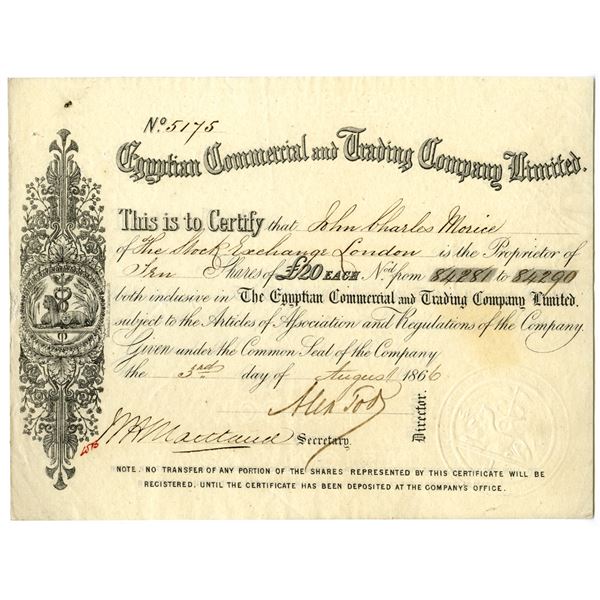 No. 5175
Egyptian Commercial and Trading Company Limited.
This is to Certify that John Charles Morice
of The Stock Exchange London is the Proprietor of
Ten Shares of £20 EACH Nod. from 84281 to 84290
both inclusive in The Egyptian Commercial and Trading Company Limited,
subject to the Articles of Association and Regulations of the Company.
Given under the Common Seal of the Company
the 3rd day of August 1866
Alex Tod
Director.
W H Maitland Secretary.
NOTE. NO TRANSFER OF ANY PORTION OF THE SHARES REPRESENTED BY THIS CERTIFICATE WILL BE
REGISTERED, UNTIL THE CERTIFICATE HAS BEEN DEPOSITED AT THE COMPANY'S OFFICE.